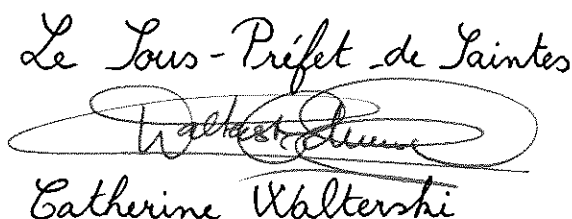 Le Sous-Préfet de Saintes
Catherine Walterski